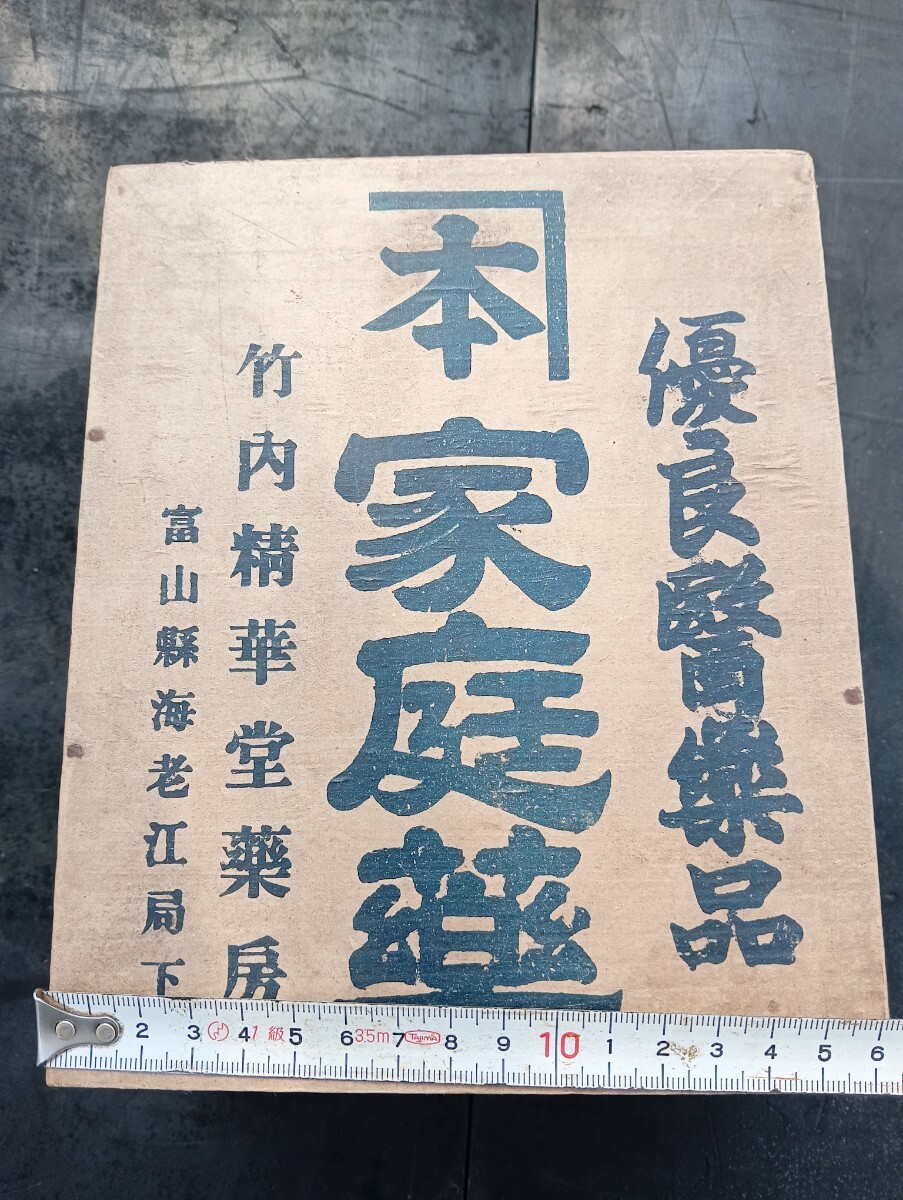 優良醫藥品
本
家庭藥
竹内精華堂藥房
富山縣海老江局下
2 3 1級 4 5 6 3.5m 7 TAJIMA 8 9 10 1 2 3 4 5 6